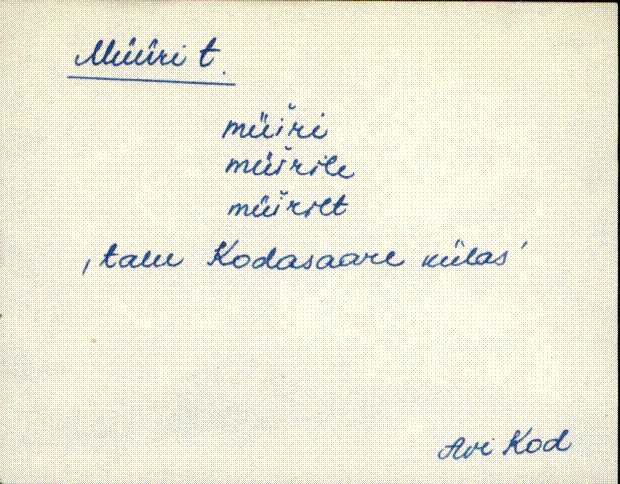 Müüri t.
müǐri
müǐrile
müǐrilt
, talu Kodasaare külas'
Avi Kod